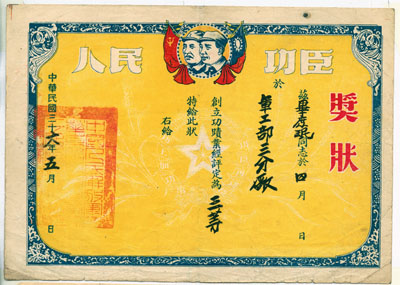 人民功臣
獎狀
茲畢珉同志於四月 日
於軍工部三分廠
創立功蹟業經評定為三等
特給此狀
右給
中華民國三十六年五月 日